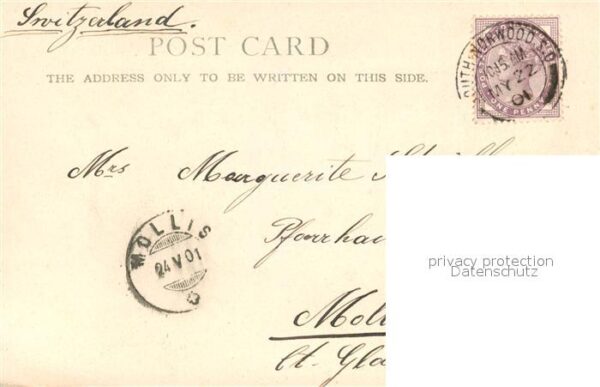 Switzerland.
POST CARD
THE ADDRESS ONLY TO BE WRITTEN ON THIS SIDE.
SOUTH NORWOOD S.O
MY 22
01
ONE PENNY
Mrs Marguerite
Pfarrha
MOLLIS
24 V 01
privacy protection
Datenschutz
Mol
Ct. Gla